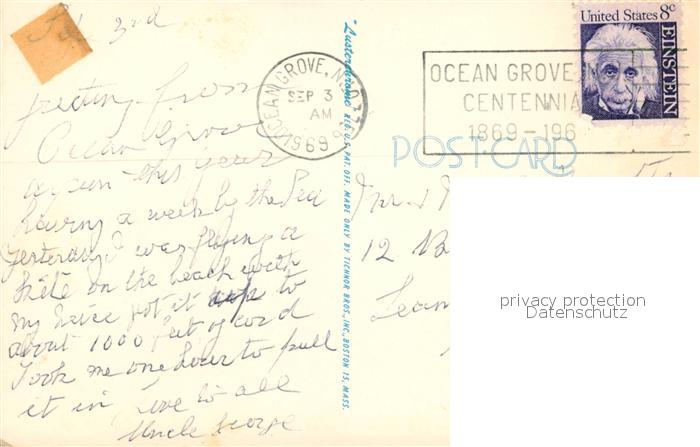 3rd
Greeting from
Ocean Grove
again this year
having a week by the Sea
Yesterday I was flying a
kite on the beach with
my neice got it up to
about 1000 feet of cord
Took me one hour to pull
it in Love to all
Uncle George
"Lusterchrome" REG. U.S. PAT. OFF. MADE ONLY BY TICHNOR BROS., INC., BOSTON 15, MASS.
OCEAN GROVE, N.J.
SEP 3
AM
1969
OCEAN GROVE
CENTENNIA
1869-196
United States 8c
EINSTEIN
POST CARD
12 B
Leam
privacy protection
Datenschutz